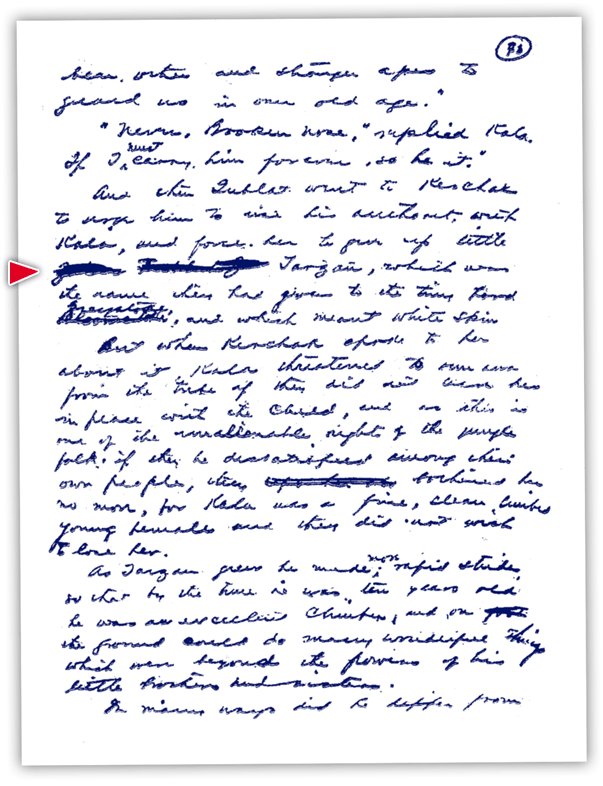 bear others and stronger apes to
guard us in our old age."
"Never, Broken nose," replied Kala.
If I must carry him forever, so be it."
And then Tublat went to Kerchak
to urge him to use his authority with
Kala, and force her to give up little
Tarzan, which was
the name they had given to the tiny Lord
Greystoke
Bloomstoke, and which meant white skin
But when Kerchak spoke to her
about it Kala threatened to run away
from the tribe if they did not leave her
in peace with the child, and as this is
one of the unalienable rights of the jungle
folk if they be dissatisfied among their
own people, they bothered her
no more, for Kala was a fine, clean limbed
young female and they did not wish
to lose her.
As Tarzan grew he made more rapid strides
so that by the time he was ten years old
he was an excellent climber, and on
the ground could do many wonderful things
which were beyond the powers of his
little brothers and sisters.
In many ways did he differ from